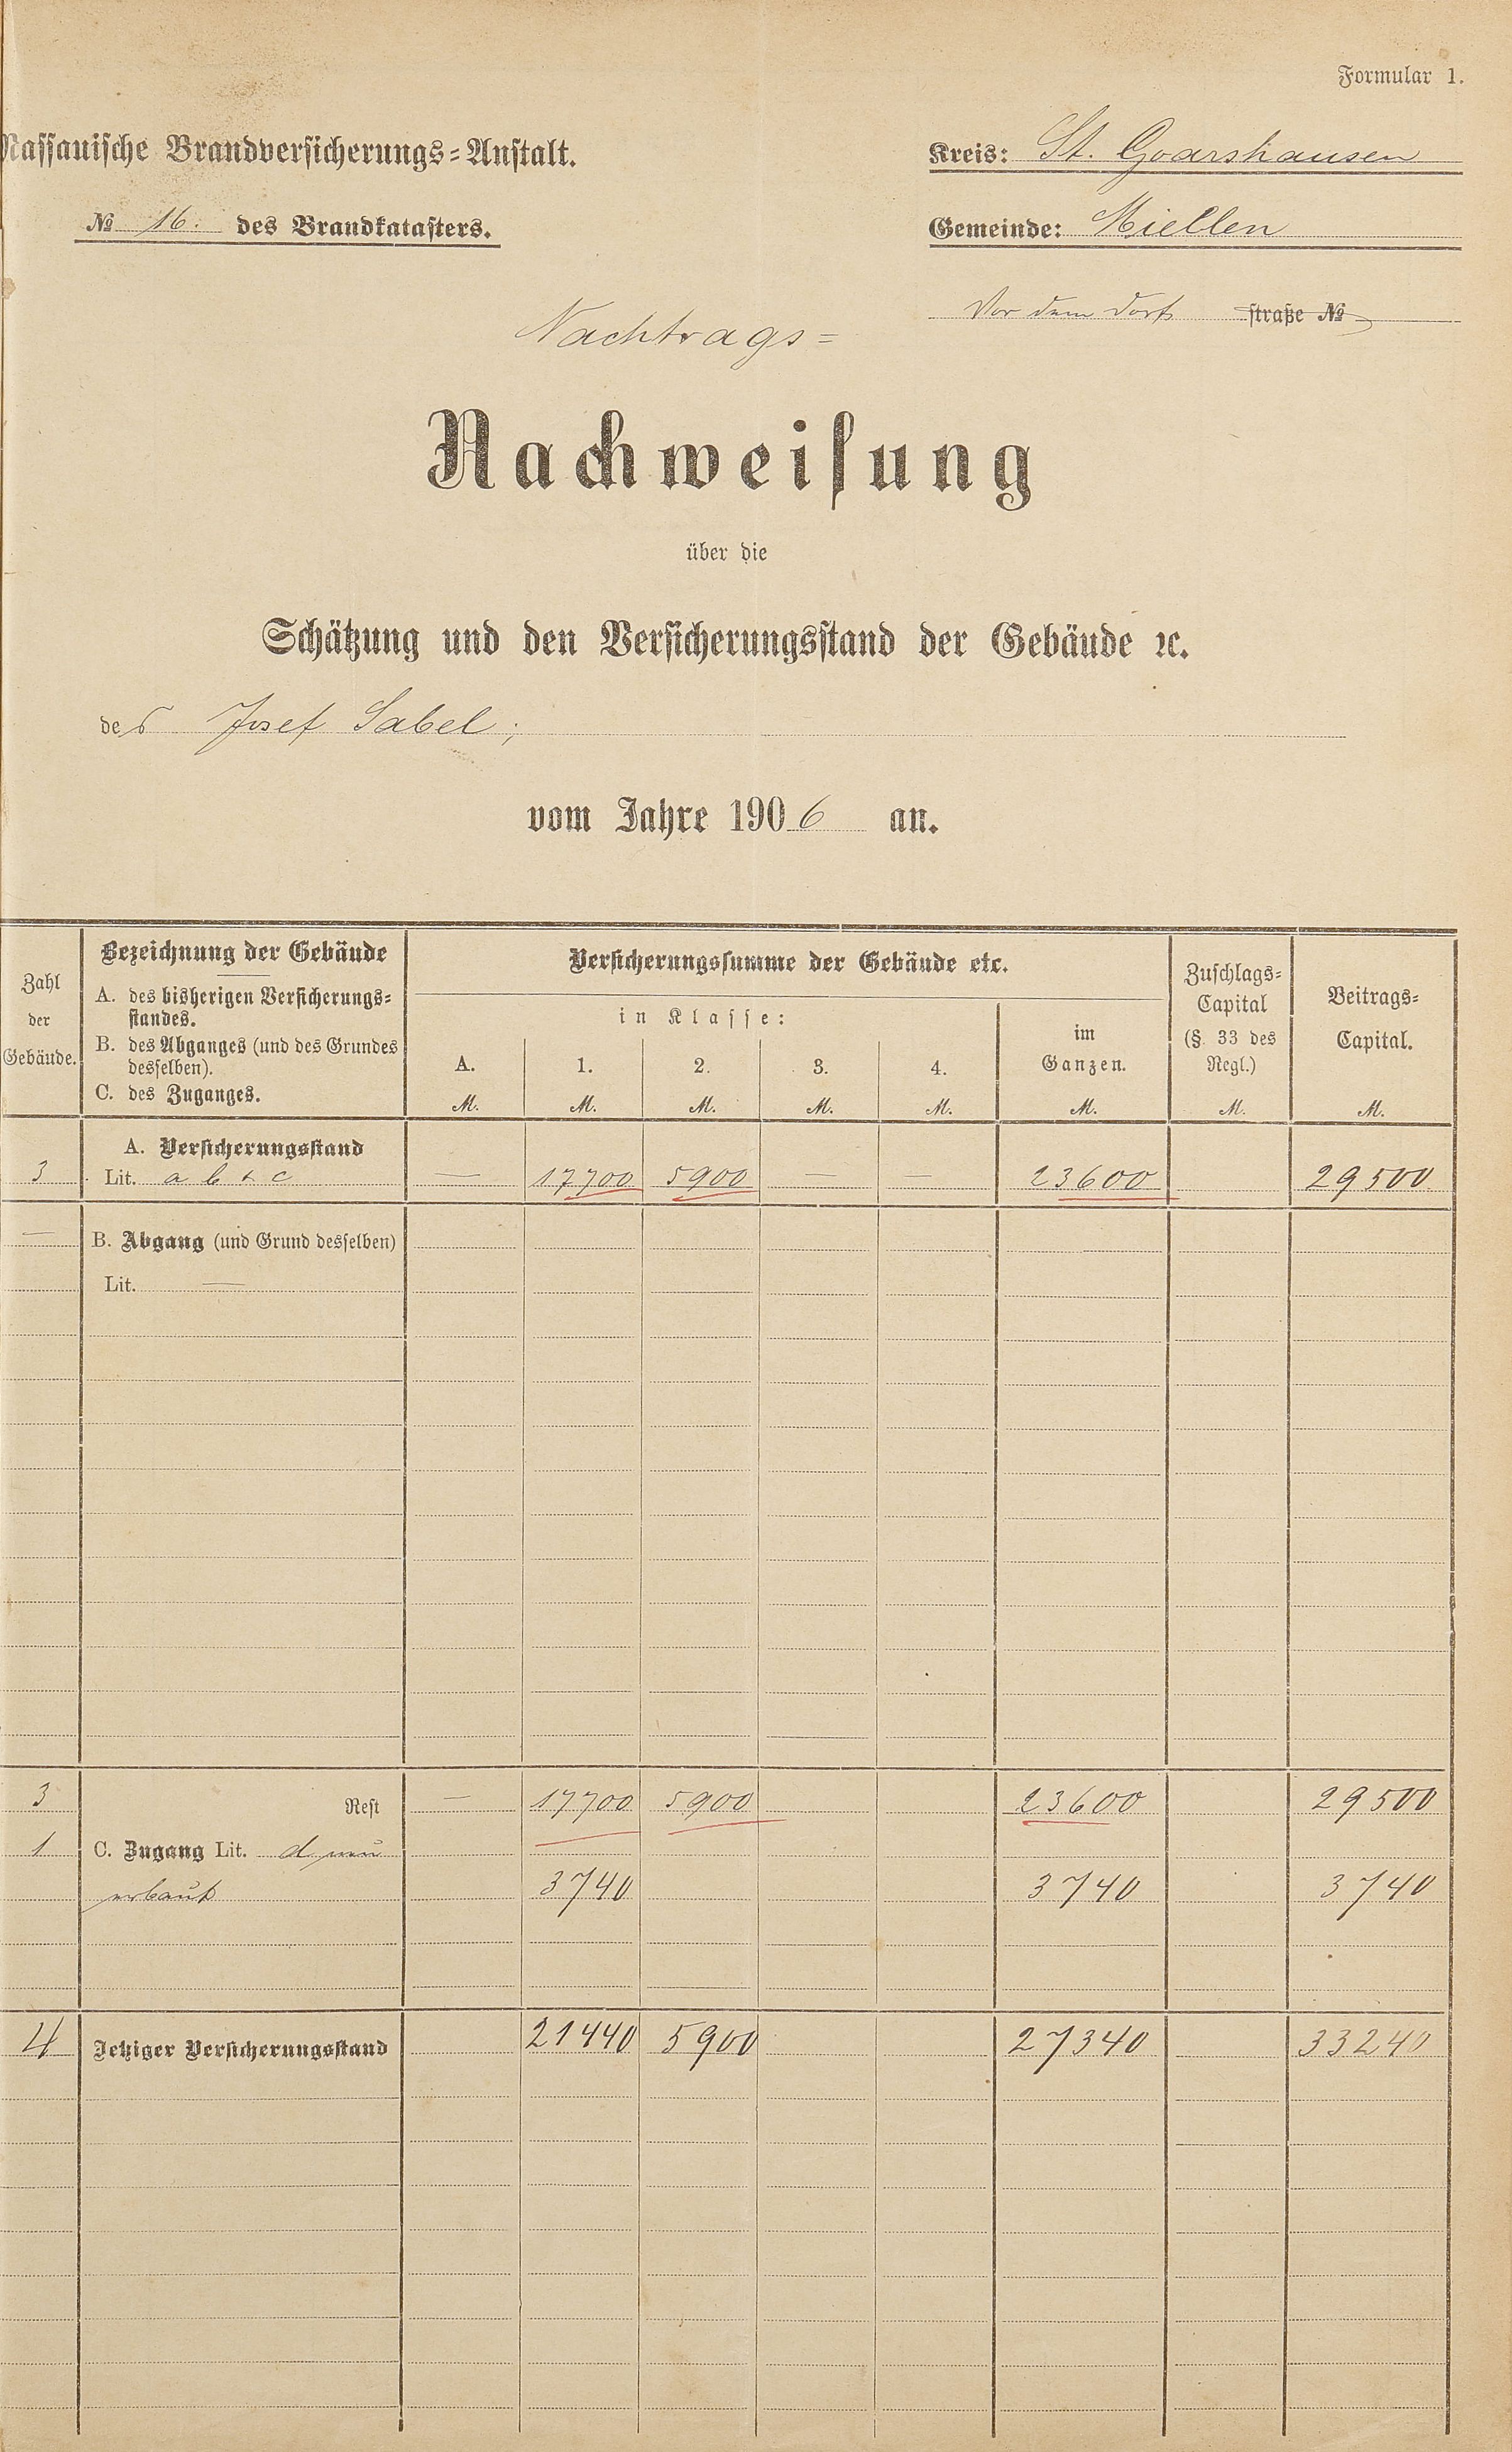 Formular 1.
Nassauische Brandversicherungs-Anstalt.
Kreis: St. Goarshausen
№ 16. des Brandkatasters.
Gemeinde: Miellen
Vor dem Dorf straße №
Nachtrags-
Nachweisung
über die
Schätzung und den Versicherungsstand der Gebäude ꝛc.
des Josef Sabel;
vom Jahre 1906 an.
Zahl der Gebäude.
Bezeichnung der Gebäude
A. des bisherigen Versicherungs-
standes.
B. des Abganges (und des Grundes
desselben).
C. des Zuganges.
Versicherungssumme der Gebäude etc.
in Klasse:
A. 1. 2. 3. 4.
im Ganzen.
Zuschlags-
Capital
(§. 33 des
Regl.)
Beitrags-
Capital.
M. M. M. M. M. M. M. M.
A. Versicherungsstand
3 Lit. a b & c — 17700 5900 — — 23600 29500
— B. Abgang (und Grund desselben)
Lit. —
3 Rest — 17700 5900 23600 29500
1 C. Zugang Lit. d, neu
erbaut 3740 3740 3740
4 Jetziger Versicherungsstand 21440 5900 27340 33240